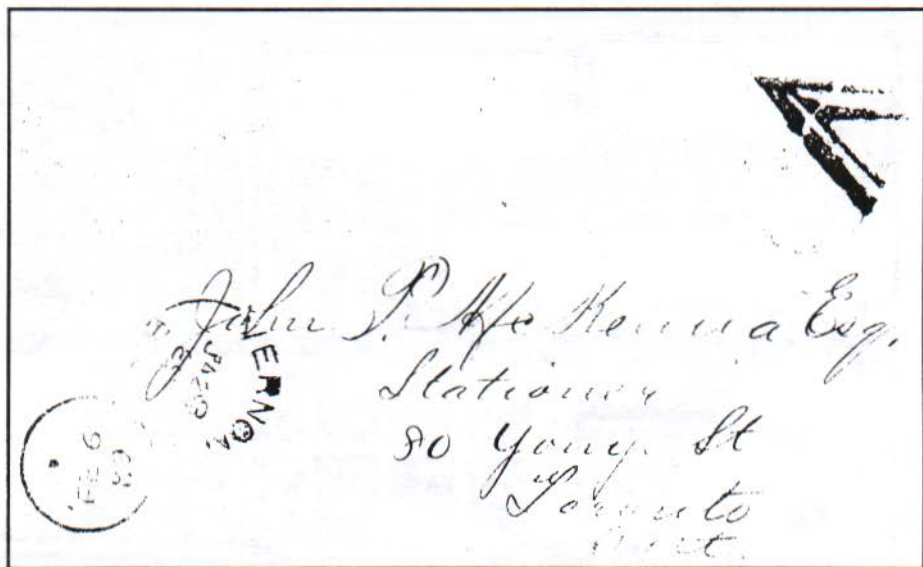 John P. McKenna Esq.
Stationer
80 Yong. St
Toronto
Ont.
VERNON